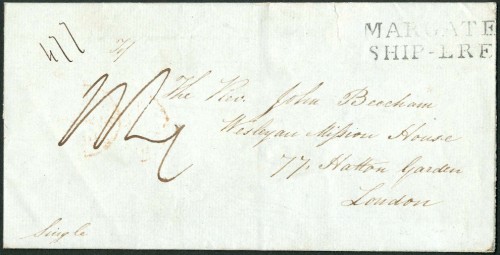 477
MARGATE
SHIP-LRE
The Rev. John Beecham
Wesleyan Mission House
77, Hatton Garden
London
Single